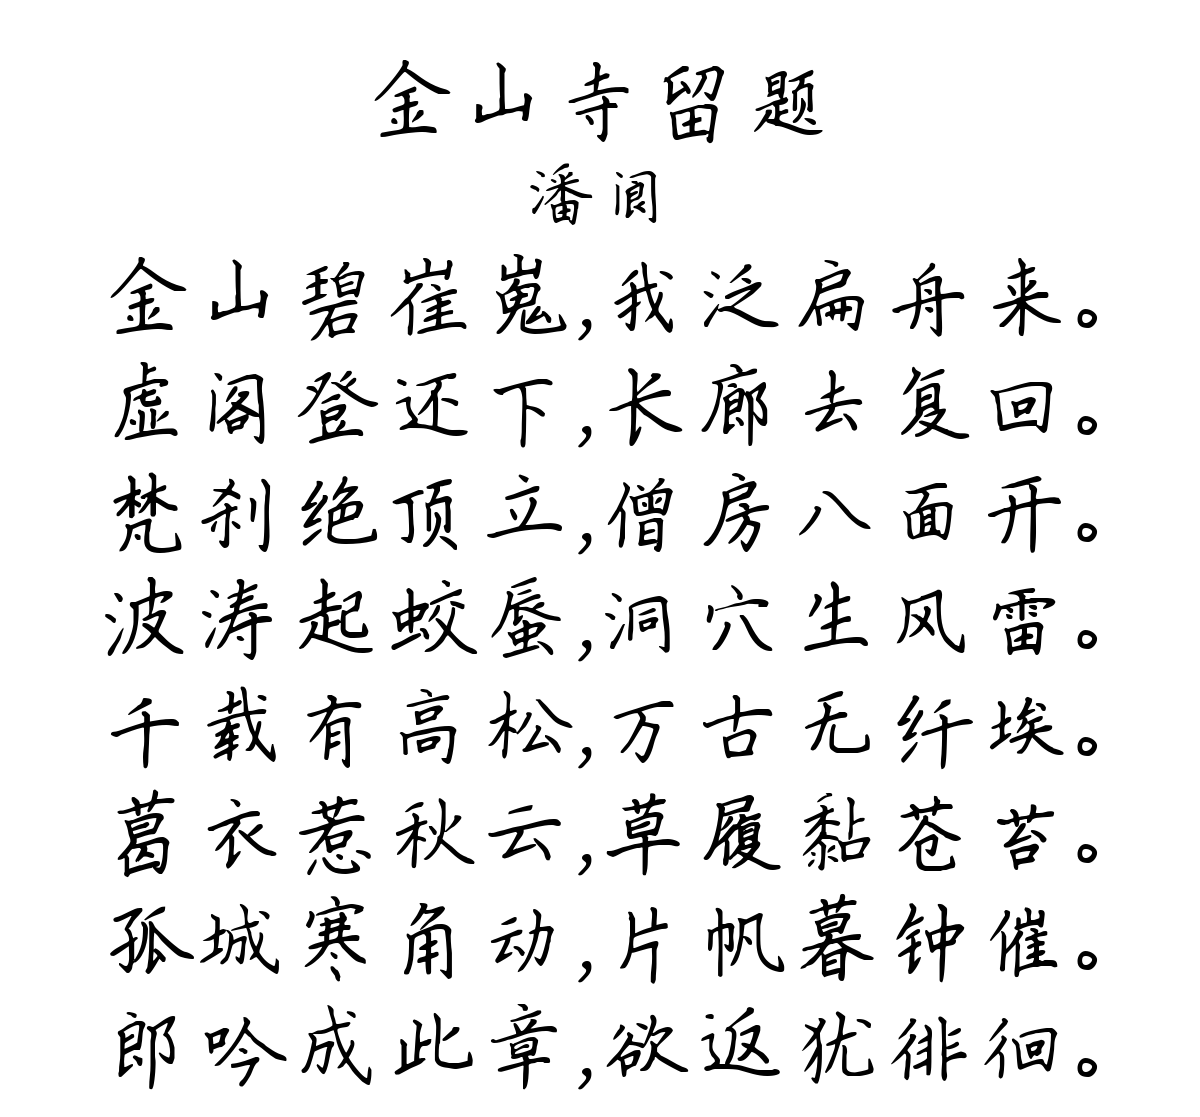 金山寺留题
潘阆
金山碧崔嵬,我泛扁舟来。
虚阁登还下,长廊去复回。
梵刹绝顶立,僧房八面开。
波涛起蛟蜃,洞穴生风雷。
千载有高松,万古无纤埃。
葛衣惹秋云,草履黏苍苔。
孤城寒角动,片帆暮钟催。
郎吟成此章,欲返犹徘徊。